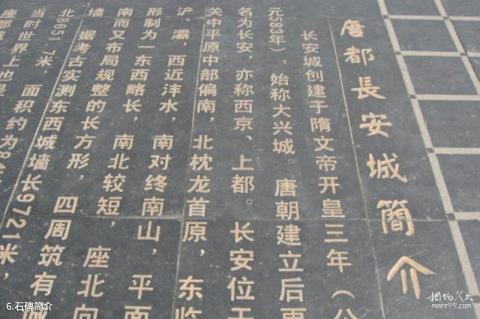 唐都長安城簡介
长安城创建于隋文帝开皇三年（公
元583年），始称大兴城。唐朝建立后更
名为长安，亦称西京、上都。长安位于
关中平原中部偏南，北枕龙首原，东临
浐、灞，西近沣水，南对终南山，平面
形制为一东西略长，南北较短，座北向
南而又布局规整的长方形，四周筑有
墙。据考古实测东西城墙长9721米，
北8651.7米，面积约为8
当时世界上也是
座
6.石碑简介
meet99.com